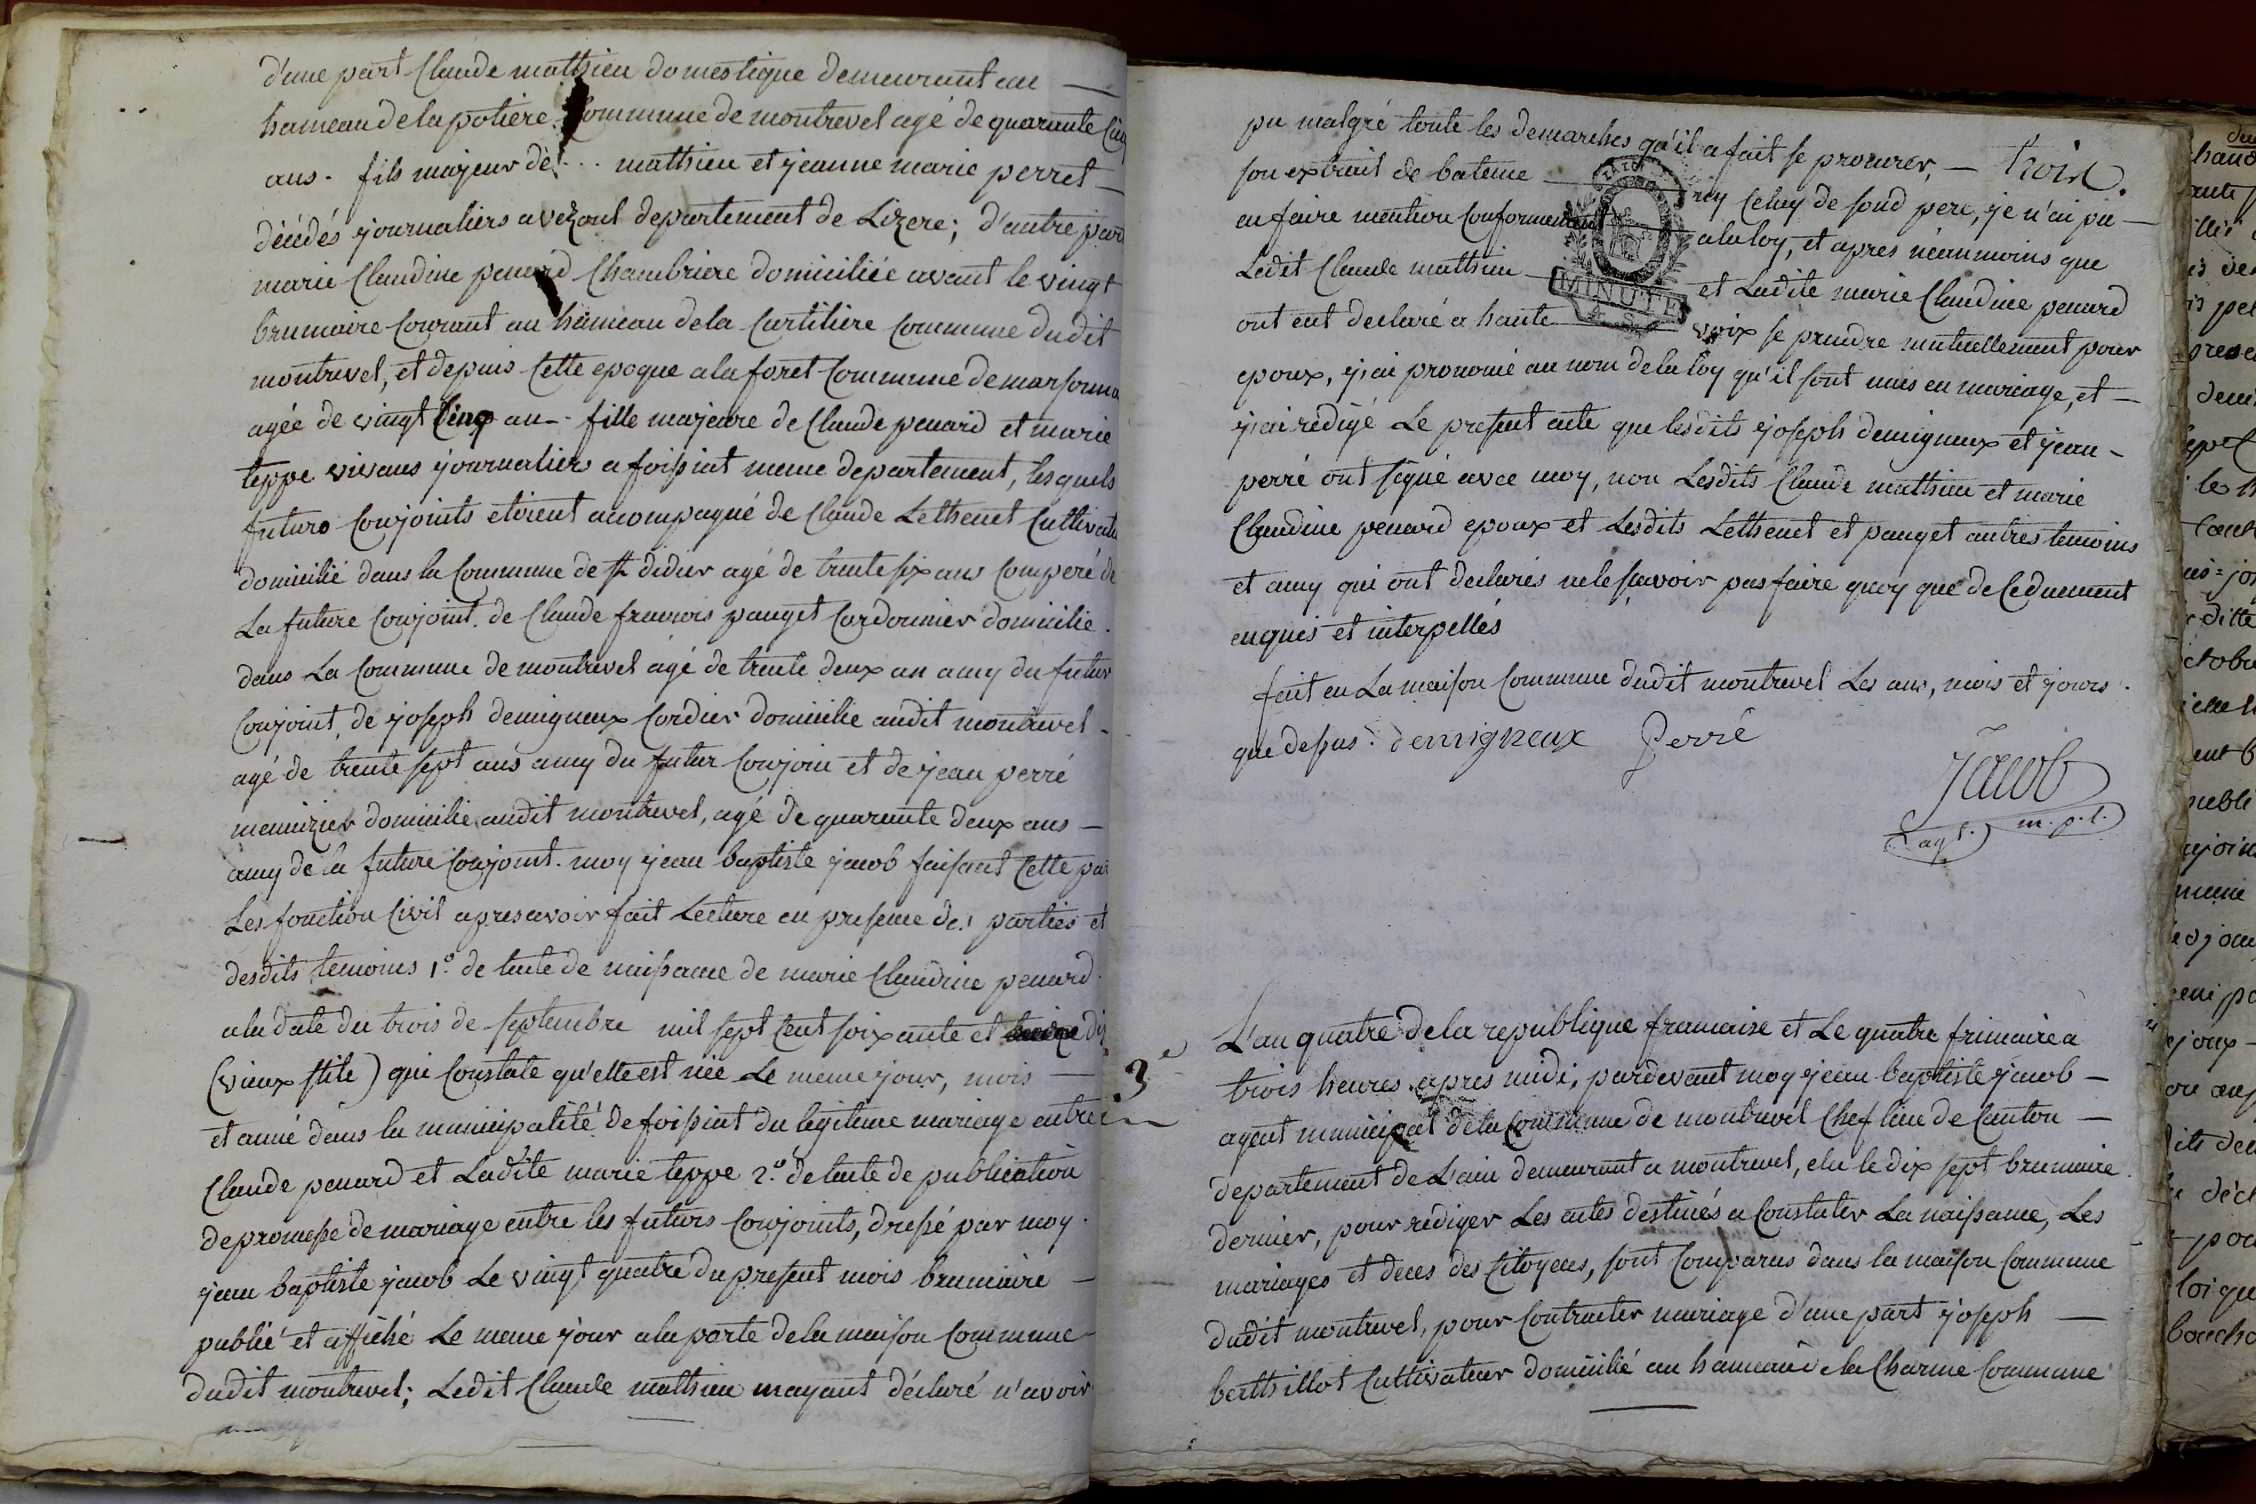 d'une part Claude mathieu domestique demeurant au —
hameau de la potiere Commune de montrevel agé de quarante Cinq
ans - fils majeur de . . . mathieu et jeanne marie perret —
décédés journaliers a vezout departement de Lizere ; d'autre part
marie Claudine penard Chambriere domiciliée avant le vingt
brumaire Courant au hameau de la Curtiliere Commune dudit
montrevel, et depuis Cette epoque a la foret Commune de marsonna
agée de vingt Cinq an - fille majeure de Claude penard et marie
teppe vivans journaliers a foissiat meme departement, lesquels
futurs Conjoints etoient acompagné de Claude Lethenet Cultivate
domicilié dans la Commune de St didier agé de trente six ans Comperé de
La future Conjoint. de Claude francois pauget Cordonnier domicilié .
dans La Commune de montrevel agé de trente deux an amy du futur
Conjoint, de joseph demigneux Cordier domicilie audit montrevel -
agé de trente sept ans amy du futur Conjoin et de jean perré
menuizier domicilie audit montrevel, agé de quarante deux ans —
amy de la future Conjoint. moy jean baptiste jacob faisant Cette par
Les fonction Civil apres avoir fait Lecture en presence des parties et
desdits temoins 1.º de lacte de naissance de marie Claudine penard .
a la date du trois de septembre mil sept Cent soixante et dix
(vieux stile) qui Constate qu'elle est née Le meme jour, mois —
et anné dans la municipalité de foissiat du légitime mariage entre
Claude penard et Ladite marie teppe 2.º de lacte de publication
de promesse de mariage entre les futurs Conjoints, dressé par moy .
jean baptiste jacob Le vingt quatre du present mois brumaire —
publié et affiché Le meme jour a la porte de la maison Commune
dudit montrevel ; Ledit Claude mathieu mayant déclaré n'avoir
trois.
pu malgré toute les demarches qu'il a fait se procurer, —
son extrait de bateme — ny Celuy de sond pere, je n'ai pu —
en faire mention Conformement a la loy, et apres néanmoins que
Ledit Claude mathieu — et Ladite marie Claudine penard
ont eut declaré a haute — voix se prendre mutuellement pour
MINUTE
epoux, j'ai prononcé au nom de la loy qu'il sont unis en mariage, et —
j'ai redigé Le present acte que lesdits joseph demigneux et jean -
perré ont signé avec moy, non Lesdits Claude mathieu et marie
Claudine penard epoux et Lesdits Lethenet et pauget autres temoins
et amy qui ont declarés ne le savoir pas faire quoy que de Ce duement
enquis et interpellés
fait en La maison Commune dudit montrevel Les ans, mois et jours .
que dessus . demigneux Perré
Jacob
agt. m. p. l.
3e
L'an quatre de la republique francaise et Le quatre frimaire a
trois heures apres midi, pardevant moy jean baptiste jacob —
agent municipal de la Commune de montrevel Chef lieu de Canton —
departement de Lain demeurant a montrevel, elu le dix sept brumaire .
dernier, pour rediger Les actes destinés a Constater La naissance, Les
mariages et deces des Citoyens, sont Comparus dans la maison Commune
dudit montrevel, pour Contracter mariage d'une part joseph —
berthillot Cultivateur domicilié au hameau de la Charme Commune